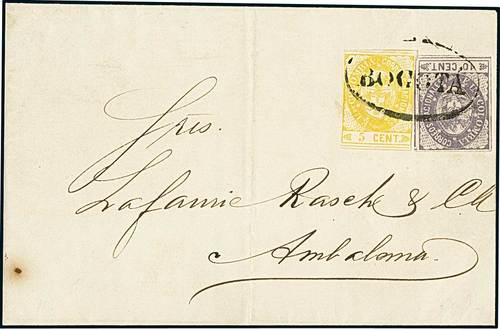 10 CENT.
BOGOTA
5 CENT.
Sres.
Lafaurie Rasche & Cª
Ambalema.